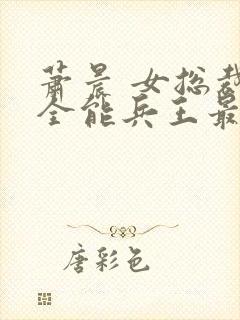 萧晨 女总裁
全能兵王最
唐彩色